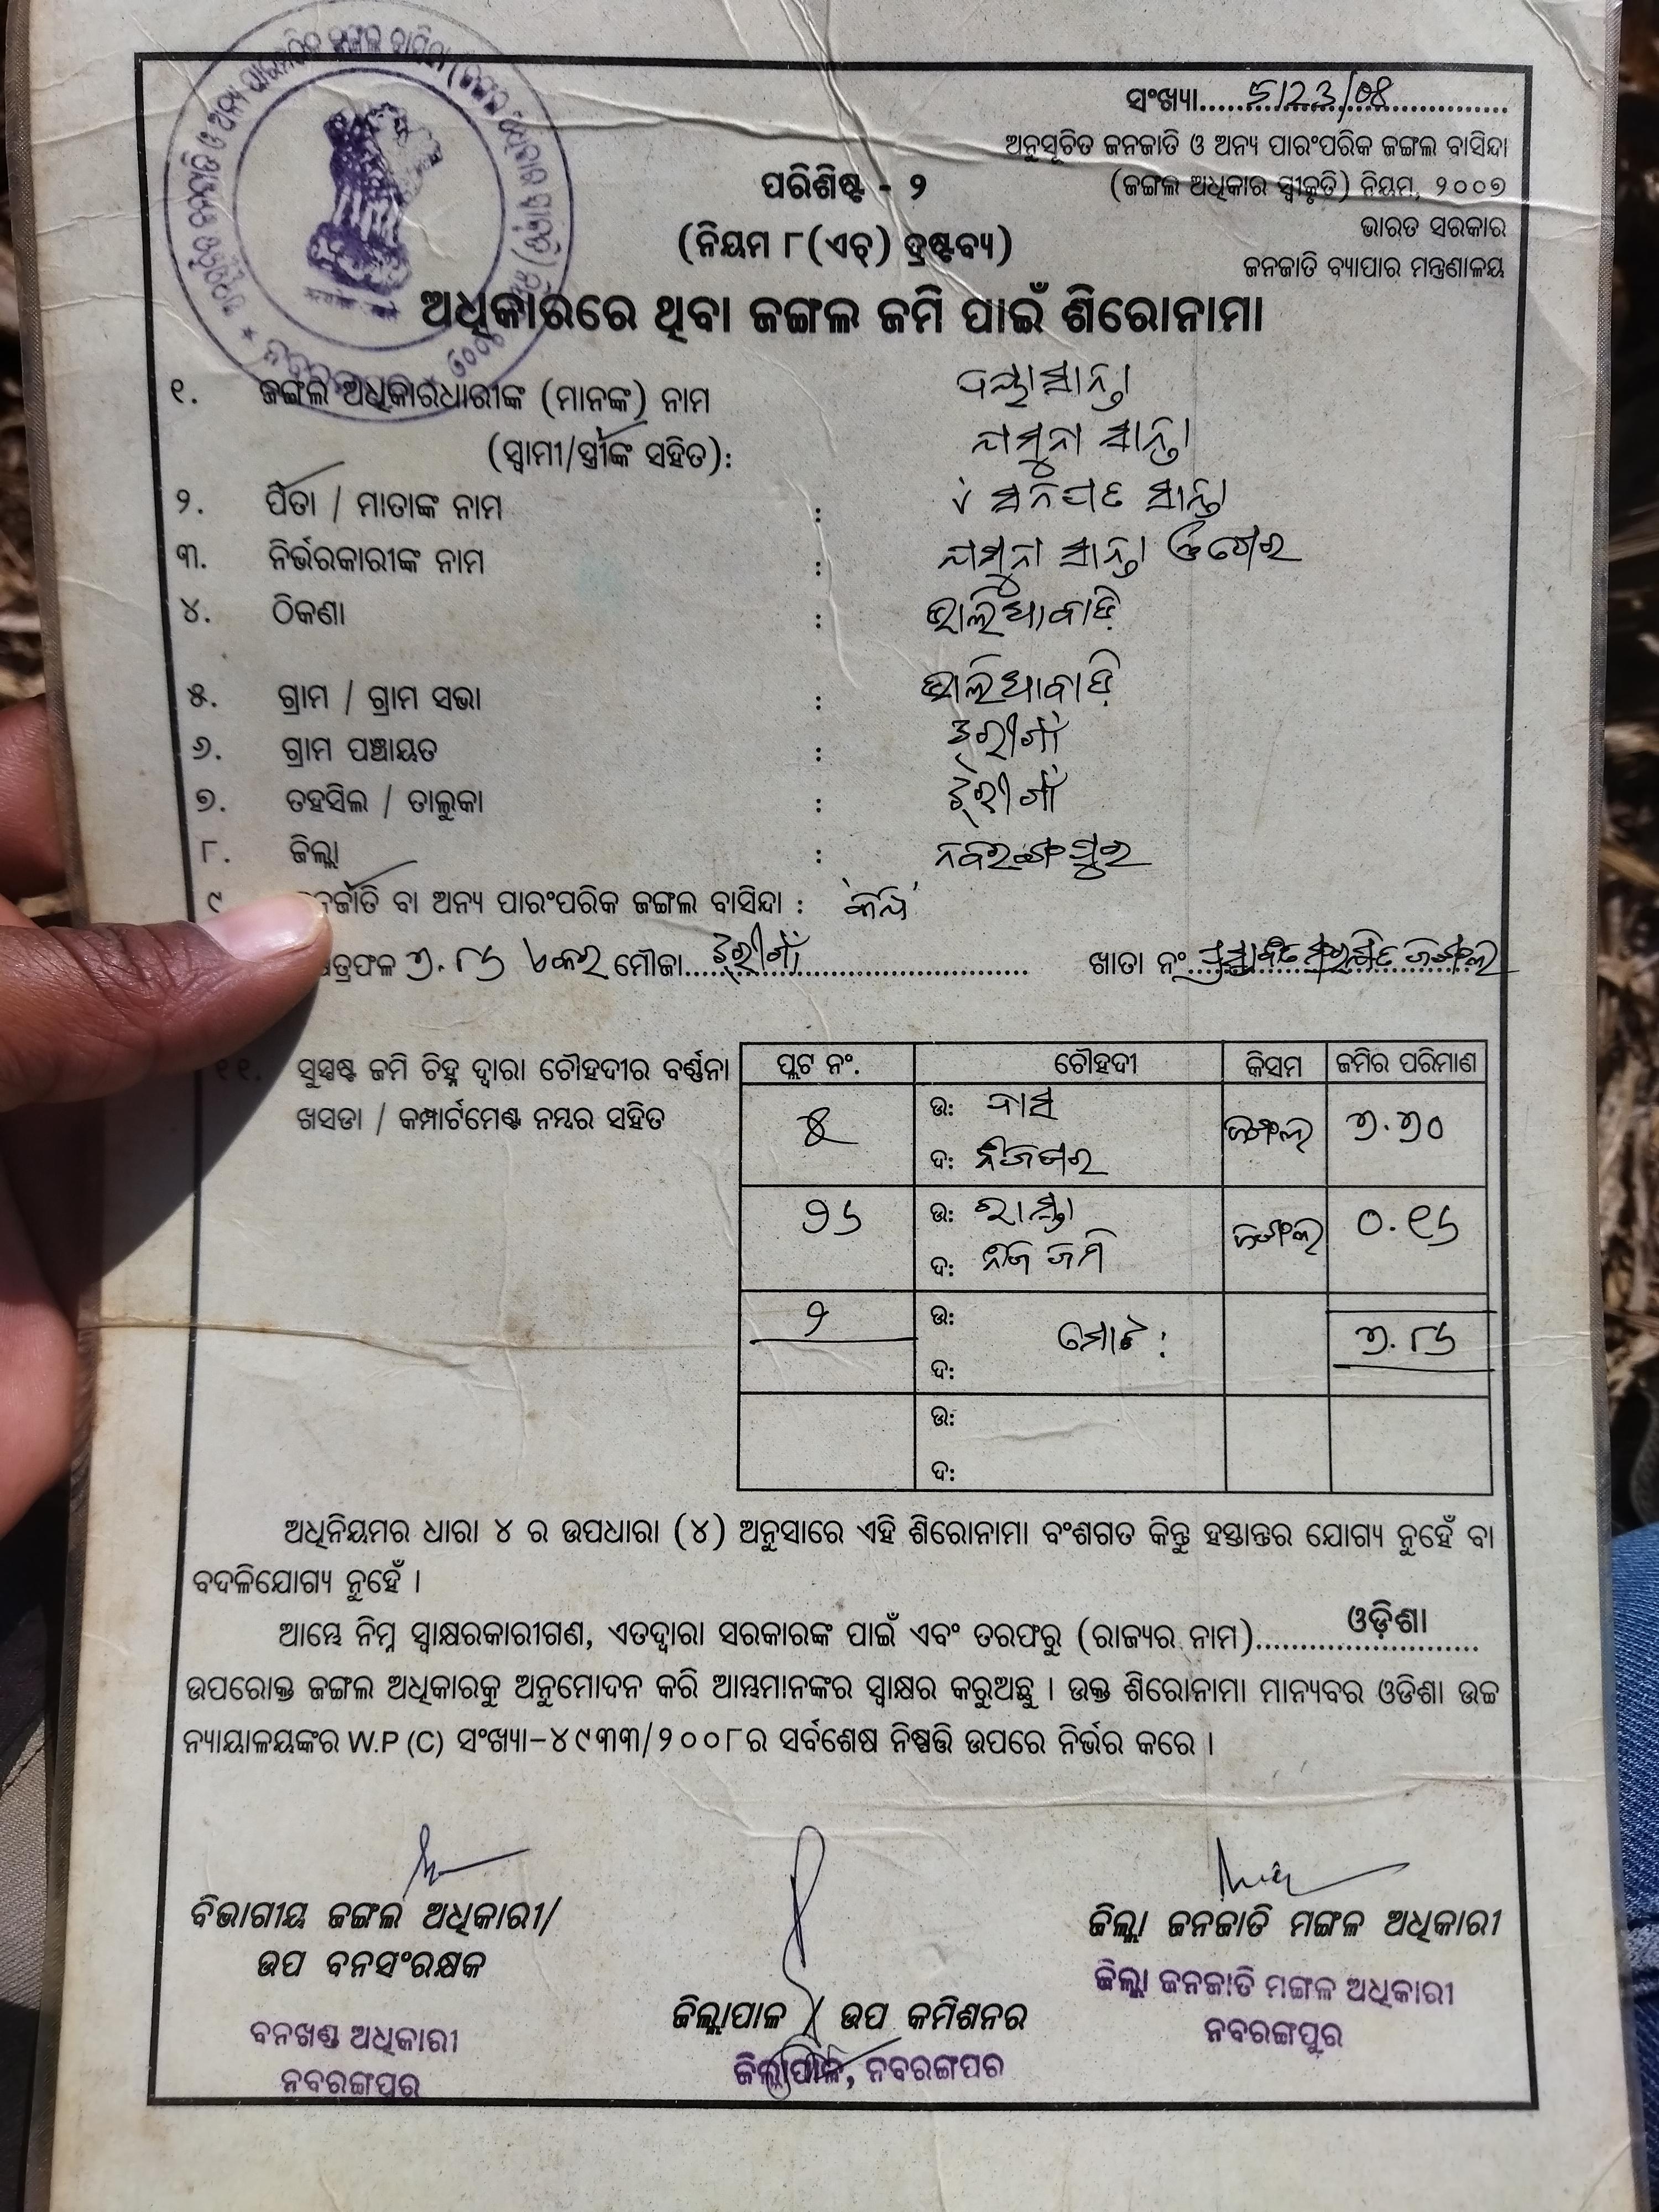 ସଂଖ୍ୟା
ଅନୁସୂଚିତ ଜନଜାତି ଓ ଅନ୍ୟ ପାରଂପରିକ ଜଙ୍ଗଲ ବାସିନ୍ଦା
(ଜଙ୍ଗଲ ଅଧିକାର ସ୍ୱୀକୃତି) ନିୟମ, ୨୦୦୭
ଭାରତ ସରକାର
ଜନଜାତି ବ୍ୟାପାର ମନ୍ତ୍ରଣାଳୟ
ପରିଶିଷ୍ଟ - ୨
(ନିୟମ ୮(ଏଚ୍) ଦ୍ରଷ୍ଟବ୍ୟ)
ଅଧିକାରରେ ଥିବା ଜଙ୍ଗଲ ଜମି ପାଇଁ ଶିରୋନାମା
୧. ଜଙ୍ଗଲ ଅଧିକାରଧାରୀଙ୍କ (ମାନଙ୍କ) ନାମ ଦୟା ସାନ୍ତା
(ସ୍ୱାମୀ/ସ୍ତ୍ରୀଙ୍କ ସହିତ): ଯମୁନା ସାନ୍ତା
୨. ପିତା / ମାତାଙ୍କ ନାମ : ସାନ୍ତା
୩. ନିର୍ଭରକାରୀଙ୍କ ନାମ : ଯମୁନା ସାନ୍ତା
୪. ଠିକଣା :
୫. ଗ୍ରାମ / ଗ୍ରାମ ସଭା :
୬. ଗ୍ରାମ ପଞ୍ଚାୟତ : ଝରୀଗାଁ
୭. ତହସିଲ / ତାଲୁକା : ଝରୀଗାଁ
୮. ଜିଲ୍ଲା : ନବରଙ୍ଗପୁର
୯ ଜନଜାତି ବା ଅନ୍ୟ ପାରଂପରିକ ଜଙ୍ଗଲ ବାସିନ୍ଦା :
୩.୮୬ ଏକର ମୌଜା ଝରୀଗାଁ ଖାତା ନଂ ଜଙ୍ଗଲ
୧୧. ସୁସ୍ପଷ୍ଟ ଜମି ଚିହ୍ନ ଦ୍ୱାରା ଚୌହଦୀର ବର୍ଣ୍ଣନା
ଖସଡା / କମ୍ପାର୍ଟମେଣ୍ଟ ନମ୍ବର ସହିତ
ପ୍ଲଟ ନଂ. ଚୌହଦୀ କିସମ ଜମିର ପରିମାଣ
ଉ: ଦାସ
ଜଙ୍ଗଲ ୩.୭୦
ଦ: ନିଜଘର
୨୬ ଉ: ରାସ୍ତା ଜଙ୍ଗଲ ୦.୧୬
ଦ: ନିଜ ଜମି
୨ ଉ:
ମୋଟ: ୩.୮୬
ଦ:
ଉ:
ଦ:
ଅଧିନିୟମର ଧାରା ୪ ର ଉପଧାରା (୪) ଅନୁସାରେ ଏହି ଶିରୋନାମା ବଂଶଗତ କିନ୍ତୁ ହସ୍ତାନ୍ତର ଯୋଗ୍ୟ ନୁହେଁ ବା
ବଦଳିଯୋଗ୍ୟ ନୁହେଁ ।
ଆମ୍ଭେ ନିମ୍ନ ସ୍ୱାକ୍ଷରକାରୀଗଣ, ଏତଦ୍ୱାରା ସରକାରଙ୍କ ପାଇଁ ଏବଂ ତରଫରୁ (ରାଜ୍ୟର ନାମ) ଓଡ଼ିଶା
ଉପରୋକ୍ତ ଜଙ୍ଗଲ ଅଧିକାରକୁ ଅନୁମୋଦନ କରି ଆମ୍ଭମାନଙ୍କର ସ୍ୱାକ୍ଷର କରୁଅଛୁ । ଉକ୍ତ ଶିରୋନାମା ମାନ୍ୟବର ଓଡିଶା ଉଚ୍ଚ
ନ୍ୟାୟାଳୟଙ୍କର W.P (C) ସଂଖ୍ୟା-୪୯୩୩/୨୦୦୮ର ସର୍ବଶେଷ ନିଷ୍ପତ୍ତି ଉପରେ ନିର୍ଭର କରେ ।
ବିଭାଗୀୟ ଜଙ୍ଗଲ ଅଧିକାରୀ/
ଉପ ବନସଂରକ୍ଷକ
ବନଖଣ୍ଡ ଅଧିକାରୀ
ନବରଙ୍ଗପୁର
ଜିଲ୍ଲାପାଳ / ଉପ କମିଶନର
ଜିଲ୍ଲାପାଳ, ନବରଙ୍ଗପୁର
ଜିଲ୍ଲା ଜନଜାତି ମଙ୍ଗଳ ଅଧିକାରୀ
ଜିଲ୍ଲା ଜନଜାତି ମଙ୍ଗଳ ଅଧିକାରୀ
ନବରଙ୍ଗପୁର